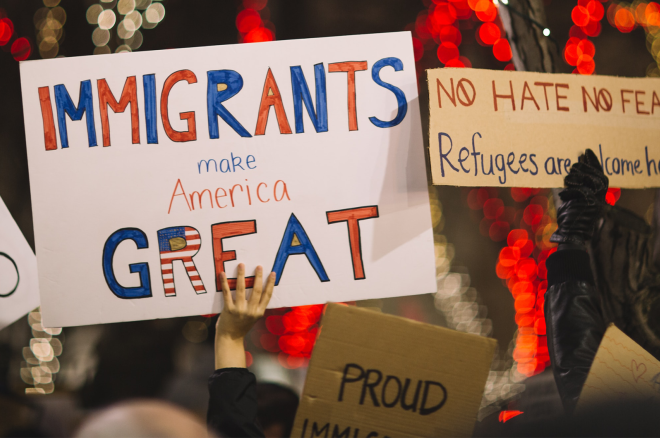 IMMIGRANTS
make
America
GREAT
NO HATE NO FEA
Refugees are lcome he
PROUD
IMMIG